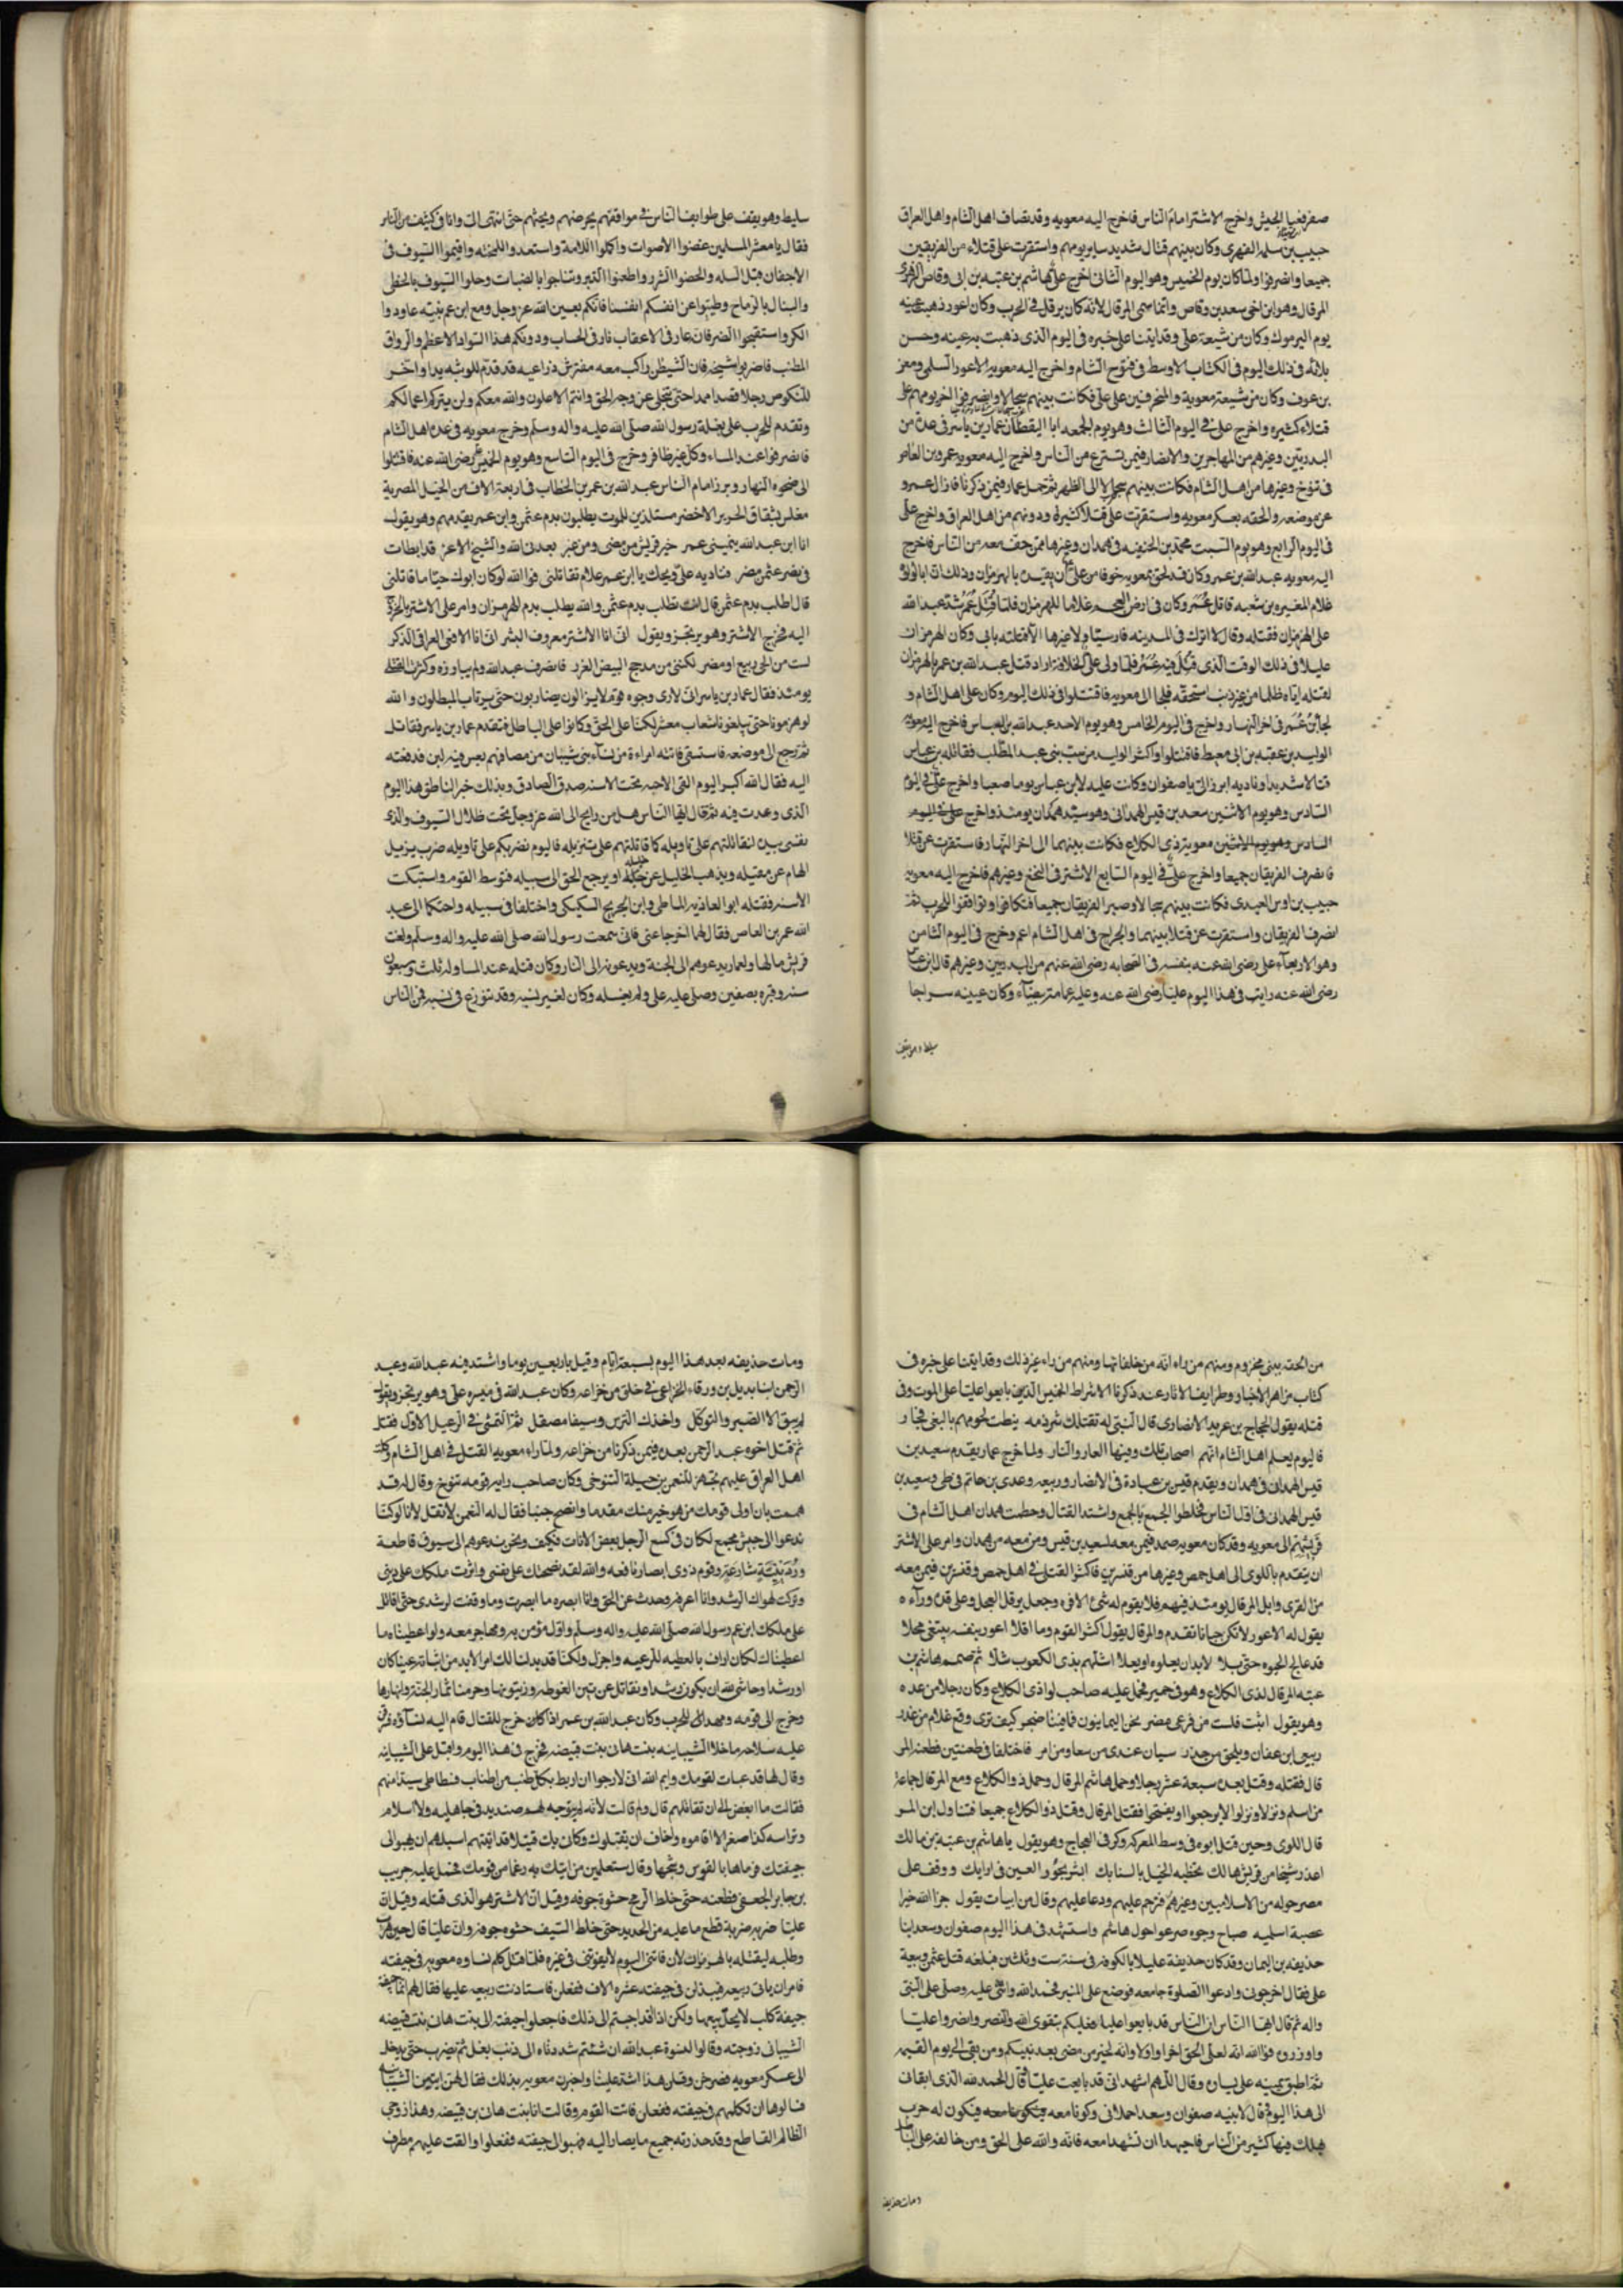 صفر فعبا الجيش واخرج الاشتر امام الناس فاخرج اليه معويه وقد تصاف اهل الشام واهل العراق
حبيب بن سلمه الفهرى وكان بينهم قتال شديد ساير يومهم واستقرت على قتلاء من الفريقين
جميعا وانصرفوا ولما كان يوم الخميس وهو اليوم الثانى اخرج على هاشم بن عتبه بن ابى وقاص الزهرى
المرقال وهو ابن اخى سعد بن وقاص وانما سمى المرقال لانه كان يرقل فى الحرب وكان اعور ذهبت عينه
يوم اليرموك وكان من شيعة على وقد اتينا على خبره فى اليوم الذى ذهبت به عينه وحسن
بلائه فى ذلك اليوم فى الكتاب الاوسط فى فتوح الشام واخرج اليه معويه الاعور السلمى ومعز
بن عوف وكان من شيعة معوية والمنحرفين على على فكانت بينهم سجالا وانصرفوا اخر يومهم على
قتلاء كثيره واخرج على فى اليوم الثالث وهو يوم الجمعه ابا اليقظان عمار بن ياسر فى عدة من
البدريين وغيرهم من المهاجرين والانصار فيمن تسترع من الناس واخرج اليه معويه عمرو بن العاص
فى تنوخ وغيرها من اهل الشام فكانت بينهم سجالا الى الظهر ثم حمل عمار فيمن ذكرنا فازال عمرو
عن موضعه والحقه بعسكر معويه واستقرت على قتلا كثيرة ودونهم من اهل العراق واخرج على
فى اليوم الرابع وهو يوم السبت محمد بن الحنفيه فى همدان وغيرها ممن خف معه من الناس فاخرج
اليه معويه عبد الله بن عمر وكان قد لحق بمعويه خوفا من على ان يقيده بالهرمزان وذلك ان ابا لولو
غلام المغيره بن شعبه قاتل عمر وكان فى ارض العجم غلاما للهرمزان فلما قتل عمر شد عبد الله
على الهرمزان فقتله وقال لا اترك فى المدينه فارسيا ولا غيرها الا قتلته بابى وكان الهرمزان
عليلا فى ذلك الوقت الذى قتل فيه عمر فلما ولى على الخلافة اراد قتل عبد الله بن عمر بالهرمزان
لقتله اياه ظلما من غير ذنب استحقه فلجا الى معويه فاقتتلوا فى ذلك اليوم وكان على اهل الشام و
نجا بن عمر فى اخر النهار واخرج فى اليوم الخامس وهو يوم الاحد عبد الله بن العباس فاخرج اليه معويه
الوليد بن عقبه بن ابى معيط فاقتتلوا واكثر الوليد من سب بنى عبد المطلب فقاتله بن عباس
قتالا شديدا وناديه ابرز الى يا صفوان وكانت عليه لابن عباس يوما صعبا واخرج على فى اليوم
السادس وهو يوم الاثنين سعد بن قيس الهمدانى وهو سيد همدان يومئذ واخرج على فى اليوم
السادس وهو يوم الاثنين معوية ذى الكلاع فكانت بينهما الى اخر النهار فاستقرت عن قتلا
فانصرف الفريقان جميعا واخرج على فى اليوم السابع الاشتر فى النخع وغيرهم فاخرج اليه معويه
حبيب بن اوس العبدى فكانت بينهم سجالا وصبر الفريقان جميعا فتكافوا وتوافقوا للحرب ثم
انصرف الفريقان واستقرت عن قتلا بينهما والجراح فى اهل الشام اعم وخرج فى اليوم الثامن
وهو الاربعاء على رضى الله عنه بنفسه فى الصحابه رضى الله عنهم من البدريين وغيرهم قال ابن عباس
رضى الله عنه رايت فى هذا اليوم عليا رضى الله عنه وعليه عمامة بيضاء وكان عينيه سراجا
سليط وهو يقف
سليط وهو يقف على طوايف الناس فى مواقفهم يحرضهم ويحثهم حتى انتهى الى وانا فى كثيف من الناس
فقال يا معشر المسلمين غضوا الاصوات واكملوا اللامة واستمدوا اللجنه واقيموا السيوف فى
الاجفان قبل السله والحضوا الشزر واطعنوا النبر وتناجوا بالضبات وصلوا السيوف بالخطى
والنبال بالرماح وطيبوا عن انفسكم انفسنا فانكم بعين الله عز وجل ومع ابن عم نبيه عاودوا
الكر واستقبحوا الفر فانه عار فى الاعقاب نار فى الحساب ودونكم هذا السواد الاعظم والرواق
المطنب فاضربوا شيحه فان الشيطن راكب معه مفترش ذراعيه قد قدم للوثبه يدا واخر
للنكوص رجلا فصدا صمدا حتى يتجلى عن وجه الحق وانتم الاعلون والله معكم ولن يتركم اعمالكم
وتقدم للحرب على بغلة رسول الله صلى الله عليه واله وسلم وخرج معويه فى عدد اهل الشام
فانصرفوا عند المساء وكل غير ظافر وخرج فى اليوم التاسع وهو يوم الخميس رضى الله عنه فاقتتلوا
الى ضحوه النهار وبرز امام الناس عبد الله بن عمر بن الخطاب فى اربعة الاف من الخيل المصرية
مغلس بشقاق الحرير الاخضر مستلذين للموت يطلبون بدم عثمن وابن عمر يقدمهم وهو يقول
انا ابن عبد الله ينمينى عمر خير قريش من مضى ومن غبر بعد نبى الله والشيخ الاغر قد ابطات
فى نصر عثمن مضر فناديه على ويحك يا ابن عمر علام تقاتلنى فوالله لو كان ابوك حيا ما قاتلنى
قال اطلب بدم عثمن قال انك تطلب بدم عثمن والله يطلب بدم الهرمزان وامر على الاشتر بالخروج
اليه فخرج الاشتر وهو يرتجز ويقول انى انا الاشتر معروف الشتر انى انا الافعى العراقى الذكر
لست من الحى ربيع او مضر لكننى من مذحج البيض الغرر فانصرف عبد الله ولم يباوزه وكثرت القتلى
يومئذ فقال عمار بن ياسر انى لارى وجوه قوم لا يزالون يضاربون حتى يرتاب المبطلون والله
لو هزمونا حتى يبلغونا شعاب معشر لكنا على الحق وكانوا على الباطل فتقدم عمار بن ياسر فقاتل
ثم رجع الى موضعه فاستسقى فاتته امراءة من نساء بنى شيبان من مصافهم بعس فيه لبن فدفعته
اليه فقال الله اكبر اليوم القى الاحبه تحت الاسنه صدق الصادق وبذلك خبر الناطق هذا اليوم
الذى وعدت فيه ثم قال ايها الناس هل من رايح الى الله عز وجل تحت ظلال السيوف والذى
نفسى بيده لنقاتلنهم على تاويله كما قاتلتهم على تنزيله فاليوم نضربكم على تاويله ضرب يزيل
الهام عن مقيله ويذهب الخليل عن خليله او يرجع الحق الى سبيله فتوسط القوم واستبكت
الاسنه فقتله ابو العاذيه الماطى وابن الجريح السكسكى واختلفا فى سبيله واحتكما الى عبد
الله عمر بن العاص فقال لهما اخرجا عنى فانى سمعت رسول الله صلى الله عليه واله وسلم ولغت
قريش مالها ولعمار يدعوهم الى الجنة ويدعونه الى النار وكان قتله عند المسا وله ثلث وتسعون
سنه وقبره بصفين وصلى عليه على ولم يغسله وكان لغير نسبه وقد تنوزع فى نسبه فمن الناس
من الحقه ببنى مخزوم ومنهم من راه انه من حلفائها ومنهم من راه غير ذلك وقد اتينا على خبره فى
كتاب مزاهر الاخبار وطرايف الاثار عند ذكرنا الاشراط الخميس الذين بايعوا عليا على الموت وفى
قتله يقول الحجاج بن عربه الانصارى قال النبى له تقتلك شرذمه ينطت لحومهم بالبغى فجار
فاليوم يعلم اهل الشام انهم اصحاب تلك وفيها العار والنار ولما خرج عمار يقدم سعيد بن
قيس الهمدان فى همدان وتقدم قيس بن عبادة فى الانصار وربيعه وعدى بن حاتم فى طى وسعيد بن
قيس الهمدانى فى اول الناس فخلطوا الجمع بالجمع واشتد القتال وحطمت همدان اهل الشام فى
قربتهم الى معويه وقد كان معويه صمد فيمن معه لسعيد بن قيس ومن معه من همدان وامر على الاشتر
ان يتقدم باللوى الى اهل حمص وغيرها من قنسرين فاكثر القتل فى اهل حمص وقنسرين فيمن معه
من القرى وابل المرقال يومئذ فيهم فلا يقوم له شئ الا فر وجعل يرقل الفحل وعلى قدن وراءه
يقول له الاعور لا تكن جبانا تقدم والمرقال يقول اكثر القوم وما اقلا اعور بنفسه يبتغى محلا
قد عالج الحيوه حتى ملا لابد ان يعلوه او يعلا اشلهم بذى الكعوب شلا ثم صمم هاشم بن
عتبه المرقال لذى الكلاع وهو فى حمير فحمل عليه صاحب لواذى الكلاع وكان رجلا من عده
وهو يقول اثبت فلست من فرعى مضر نحن اليمانيون فما فينا ضجر كيف ترى وقع غلام من عذر
ينعى ابن عفان ويلحق من جذر سيان عندى من سعا ومن امر فاختلفا فى طعنتين فطعنه المر
قال فقتله وقتل بعده سبعة عشر رجلا وحمل هاشم المرقال وحمل ذوالكلاع ومع المرقال جماعة
من اسلم ونزلا ونزلوا لا يرجعوا او يفتحوا فقتل المرقال وقتل ذوالكلاع جميعا فتناول ابن المر
قال اللوى وحين قتل ابوه فى وسط المعركه وكر فى العجاج وهو يقول ياهاشم بن عتبة بن مالك
اعذر شيخا من قريش هالك تخطبه الخيل بالسنابك ابشر بحور العين فى ارايك ووقف على
مصرحوله من الاسلاميين وغيرهم فترحم عليهم ودعا عليهم وقال من ابيات يقول جزا الله خيرا
عصبة اسلميه صباح وجوه صرعوا حول هاشم واستشهد فى هذا اليوم صفوان وسعد ابنا
حذيفه بن اليمان وقد كان حذيفة عليلا بالكوفه فى سنة ست وثلثين فبلغه قتل عثمن وبيعة
على فقال اخرجونى وادعوا الصلوة جامعه فوضع على المنبر فحمد الله واثنى عليه وصلى على النبى
واله ثم قال ايها الناس ان الناس قد بايعوا عليا فعليكم بتقوى الله والنصر وانصروا عليا
واوزروه فوالله انه لعلى الحق اخرا واولا وانه لخير من مضى بعد نبيكم ومن بقى الى يوم القيمه
ثم اطبق يمينه على يساره وقال اللهم اشهد انى قد بايعت عليا وقال الحمد لله الذى ابقانى
الى هذا اليوم وقال لابنيه صفوان وسعد احملانى وكونا معه فيكون له حرب
يهلك فيها كثير من الناس فاجهدا ان تشهدا معه فانه والله على الحق ومن خالفه على الباطل
ومات حذيفه
ومات حذيفه بعد هذا اليوم بسبعة ايام وقيل باربعين يوما واشتد فيه عبد الله وعبد
الرحمن ابنا بديل بن ورقاء الخزاعى فى خلق من خزاعه وكان عبد الله فى ميسره على وهو يرتجز ويقول
لم يبق الا الصبر والتوكل واخذك الترس وسيفا مصقل ثم التمشى فى الرعيل الاول فقتل
ثم قتل اخوه عبد الرحمن بعده فيمن ذكرنا من خزاعه ولما راء معويه القتل فى اهل الشام وكلب
اهل العراق عليهم تجهز للنعمن بن جبلة التنوخى وكان صاحب رايه قومه تنوخ وقال له قد
هممت بان اولى قومك من هو خير منك مقدما وانصح جنبا فقال له النعمن لا تفعل لانا لو كنا
ندعوا الى جيش مجمع لكان فى كسع الرجل بعض الاناث فكيف ونحن ندعوهم الى سيوف قاطعة
وردينية شارعة وقوم ذوى ابصار نافعه والله لقد نصحتك على نفسى واثرت ملكك على دينى
وتركت لهواك الرشد وانا اعرفه وحدث عن الحق وانا ابصره ما ابصرت وما وقفت لرشدى حتى اقاتل
على ملكك ابن عم رسول الله صلى الله عليه واله وسلم واول مؤمن به ومهاجر معه ولو اعطيناه ما
اعطيناك لكان اراف بالعطيه للرعيه واجزل ولكنا قد بدلنا لك امر الابد من اتمامه عينا كان
او رشدا وحاشى لله ان يكون رشدا ونقاتل عن تين الغوطه وزيتونها وحرمنا ثمار الجنة وانهارها
وخرج الى قومه وصمد الى الحرب وكان عبد الله بن عمر اذا كان خرج للقتال قام اليه نساؤه فرش
عليه سلاحه ما خلا الشيبانيه بنت هان بنت قبيضه فخرج فى هذا اليوم واقبل على الشيبانيه
وقال لها قد عبات لقومك وايم الله انى لارجوا ان اربط بكل طنب من اطناب فسطاطى سيدا منهم
فقالت ما ابغض الى ان تقاتلهم قال ولم قالت لانه لم يتوجه لهم صنديد فى جاهليه ولا اسلام
وتراسه كذا صغر الا اقاموه واخاف ان يقتلوك وكان بك قتيلا قد اتيتهم اسيلهم ان يهبوا لى
جيفتك فرماها بالقوس وشجها وقال ستعلمين من اتيك به رغما من قومك فحمل عليه حريب
بن جابر الجعفى وطعنه حتى خلط الرمح حشوة جوفه وقيل ان الاشتر هو الذى قتله وقيل ان
عليا ضربه ضربة قطع ما عليه من الحديد حتى خلط السيف حشوه جوفه وان عليا قال حين هرب
وطلبه ليقتله بالهرمزان لان فاتنى اليوم لا يفوتنى فى غيره فلما قتل كلم نساوه معويه فى جيفته
فامر ان ياتى ربيعه فيبذلن فى جيفته عشره الاف ففعلن فاستاذنت ربيعه عليها فقال لهم انما جيفته
جيفة كلب لا يحل بيعها ولكن اذا قد اجبتم الى ذلك فاجعلوا جيفته الى بنت هان بنت قبيضه
الشيبانى زوجته وقالوا لنسوة عبد الله ان شئتم شددناه الى ذنب بغل ثم نضرب حتى يدخل
الى عسكر معويه فصرخن وقلن هذا اشد علينا واخبرن معويه بذلك فقال لهن ايتين الشيبانيه
فسالوها ان تكلمهم فى جيفته ففعلن فاتت القوم وقالت انا بنت هان بن قبيضه وهذا زوجى
الظالم القاطع وقد حذرته جميع ما يصار اليه فهبوا لى جيفته ففعلوا والقت عليهم مطرف